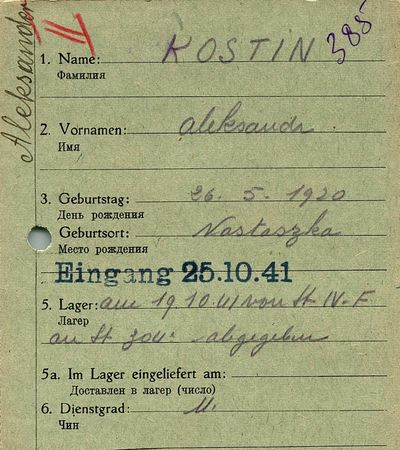 Aleksander
II
1. Name: KOSTIN 385
Фамилия
2. Vornamen: Aleksandr
Имя
3. Geburtstag: 26. 5. 1920
День рождения
Geburtsort: Nastaszka
Место рождения
Eingang 25.10.41
5. Lager: am 19.10.41 von St IV-F
Лагер
an St 304 abgegeben
5a. Im Lager eingeliefert am:
Доставлен в лагер (число)
6. Dienstgrad:
Чин